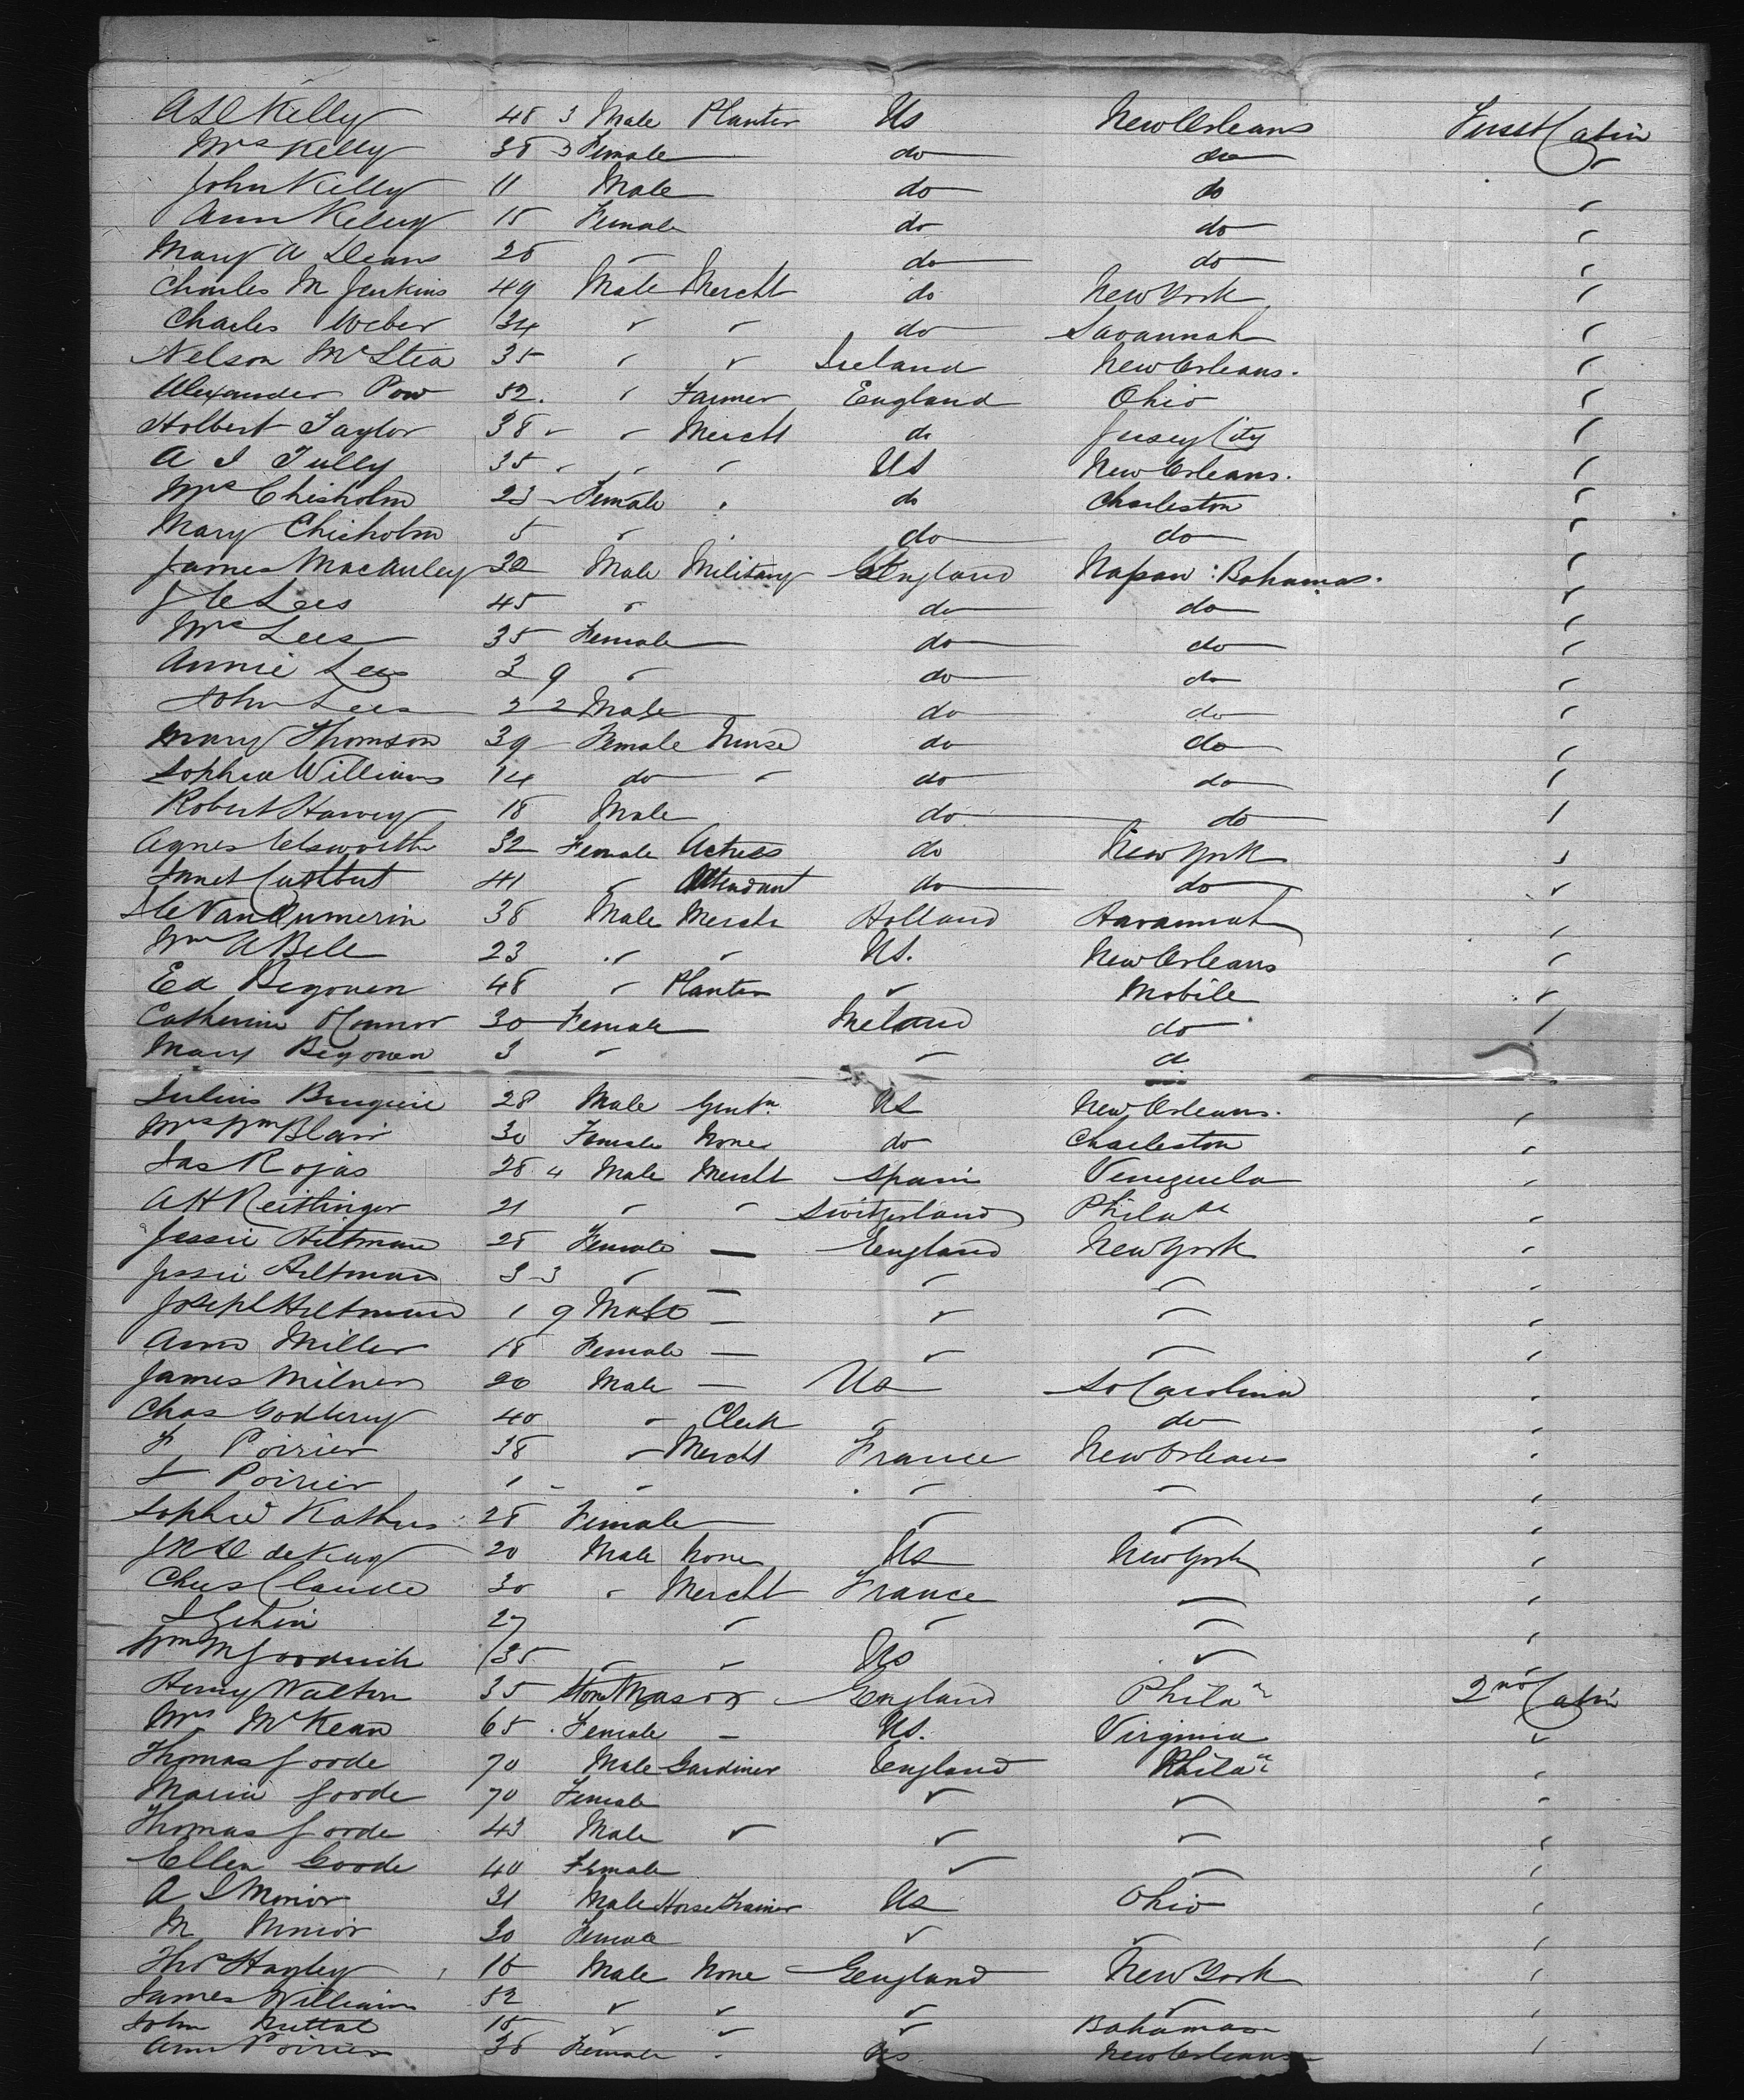 Kelly 48 3 Male Planter Us New Orleans First Cabin
Mrs Kelly 38 3 Female do do "
John Kelly 11 Male do do "
Ann Kelly 15 Female do do "
Mary A Deans 28 " do do "
Charles M Jenkins 49 Male Mercht do New York "
Charles Weber 34 " " do Savannah "
Nelson McStea 35 " " Ireland New Orleans. "
Alexander Pow 52. " Farmer England Ohio "
Holbert Taylor 38 " " Mercht do Jersey City "
A I Tully 35 " " " US New Orleans. "
Mrs Chisholm 23 Female " do Charleston "
Mary Chisholm 5 " " do do "
James MacAuley 32 Male Military England Nassau: Bahamas. "
Lees 45 " do do "
Mrs Lees 35 Female do do "
Annie Lees 3 9 " do do "
John Lees 2 2 Male do do "
Mary Thomson 39 Female Nurse do do "
Sophia Williams 14 do " do do "
Robert Harvey 18 Male do do "
Agnes Elsworth 32 Female Actress do New York "
Janet Cuthbert 41 " Attendant do do "
Van 38 Male Mercht Holland Savannah "
Wm A Bell 23 " " US. New Orleans "
Ed Begouen 48 " Planter " Mobile "
Catherine OConnor 30 Female Ireland do "
Mary Begouen 3 " " do
Julius Bruguire 28 Male Gentn. US New Orleans. "
Mrs Wm Blair 30 Female None do Charleston "
Jas Rojas 28 4 Male Mercht Spain Venezuela "
A H Reittinger 21 " " Switzerland Phila "
Jessie Hiltman 28 Female — England New York "
Jessie Hiltman 3 3 " — " " "
Joseph Hiltman 1 9 Male — " " "
Ann Miller 18 Female — " " "
James Milner 20 Male — Us So Carolina "
Chas Godfrey 40 " Clerk " do "
F Poirier 38 " Mercht France New Orleans "
F Poirier 1 " " " " "
Sophie 28 Female " " "
de Kay 20 Male None Us New York "
Chas Claude 30 " Mercht France " "
27 " " " "
Wm M Goodrich 35 " " Us " "
Henry Walton 35 Stone Mason England Phila 2nd Cabin
Mrs McKean 65 Female — US. Virginia "
Thomas Goode 70 Male Gardiner England Phila "
Maria Goode 70 Female " " "
Thomas Goode 43 Male " " " "
Ellen Goode 40 Female " " "
A I Minor 31 Male Horse Trainer Us Ohio "
M Minor 30 Female " " "
Thos Hayley 16 Male None England New York "
James Williams 52 " " " " "
John Nuttal 18 " " " Bahamas "
Ann Poirier 38 Female " Us New Orleans "